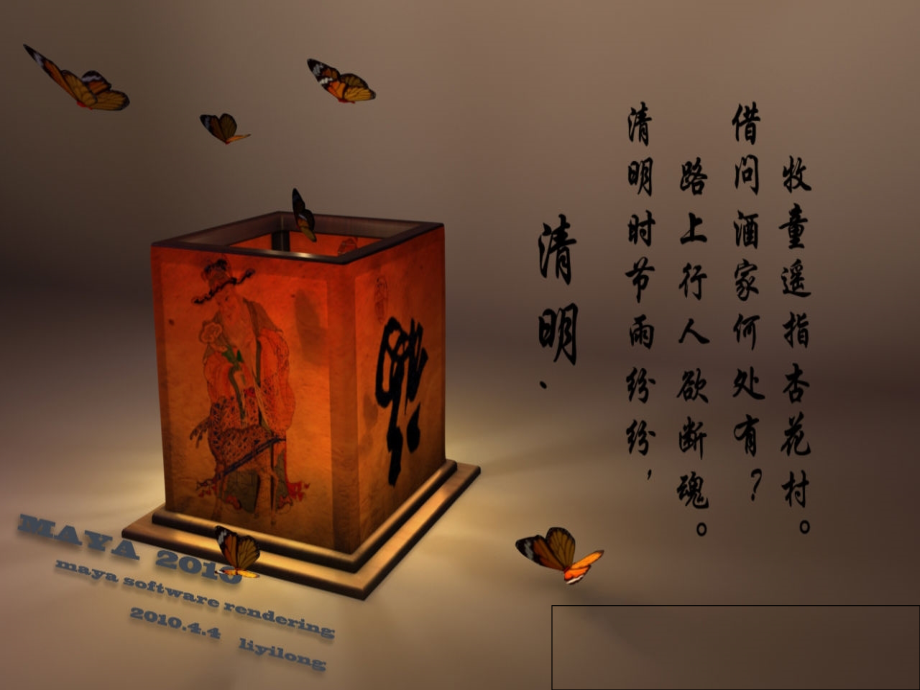 清明、
清明时节雨纷纷，
路上行人欲断魂。
借问酒家何处有？
牧童遥指杏花村。
MAYA 2010
maya software rendering
2010.4.4 liyilong